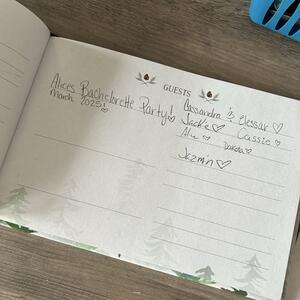 GUESTS
Alices Bachelorette Party! ♡
March 2025! ♡
Cassandra & Elessar ♡
Jackie ♡ Cassie ♡
Alice ♡ Dakota ♡
Jazmin ♡